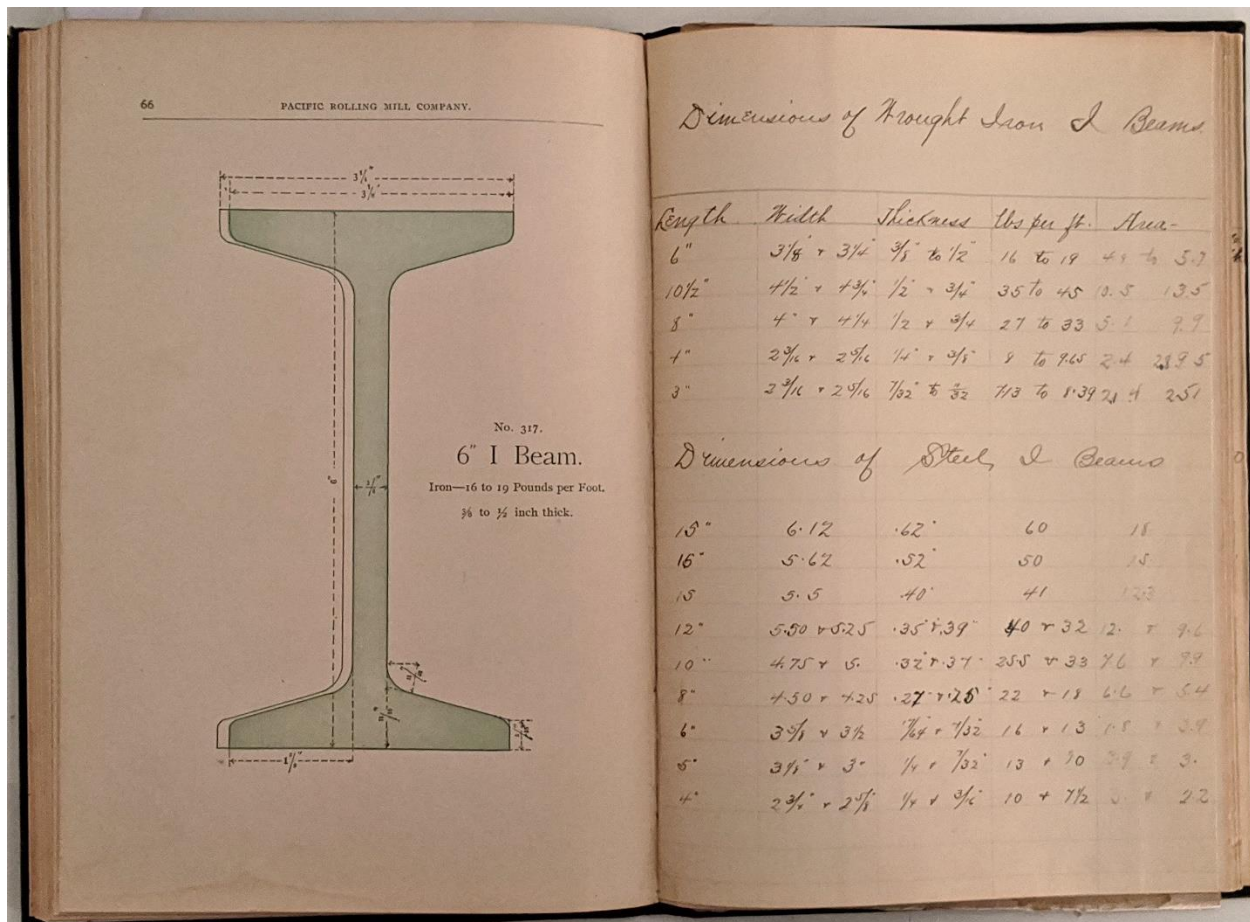 66 PACIFIC ROLLING MILL COMPANY.
No. 317.
6" I Beam.
Iron—16 to 19 Pounds per Foot.
⅜ to ½ inch thick.
Dimensions of Wrought Iron I Beams
Length Width Thickness lbs per ft. Area-
6" 3⅛" & 3¼" ⅜" to ½" 16 to 19 to 5.7
10½" 4½" & 4¾" ½" & ¾" 35 to 45 10.5 13.5
8" 4" & 4¼ ½ & ¾ 27 to 33 9.9
4" 2 3/16 & 2 5/16 ¼" & ⅜" 8 to 9.65 2.4
3" 2 3/16 & 2 5/16 7/32" to 7.13 to 8.39 2.51
Dimensions of Steel I Beams
15" 6.12 .62" 60 18
5.62 .52" 50 15
15 5.5 .40" 41 12.3
12" 5.50 & 5.25 .35 & .39 40 & 32 12. & 9.6
10" 4.75 & 5. .32 & .37 25.5 & 33 7.6 & 9.9
8" 4.50 & 4.25 .27 & .25 22 & 18 6.6 & 5.4
6" 3⅝ & 3½ & 7/32 16 & 13 & 3.9
5" & 3" ¼ & 7/32" 13 & 3.
4" 2¾" & 2⅝ ¼ & 3/16 10 & 7½ & 2.2